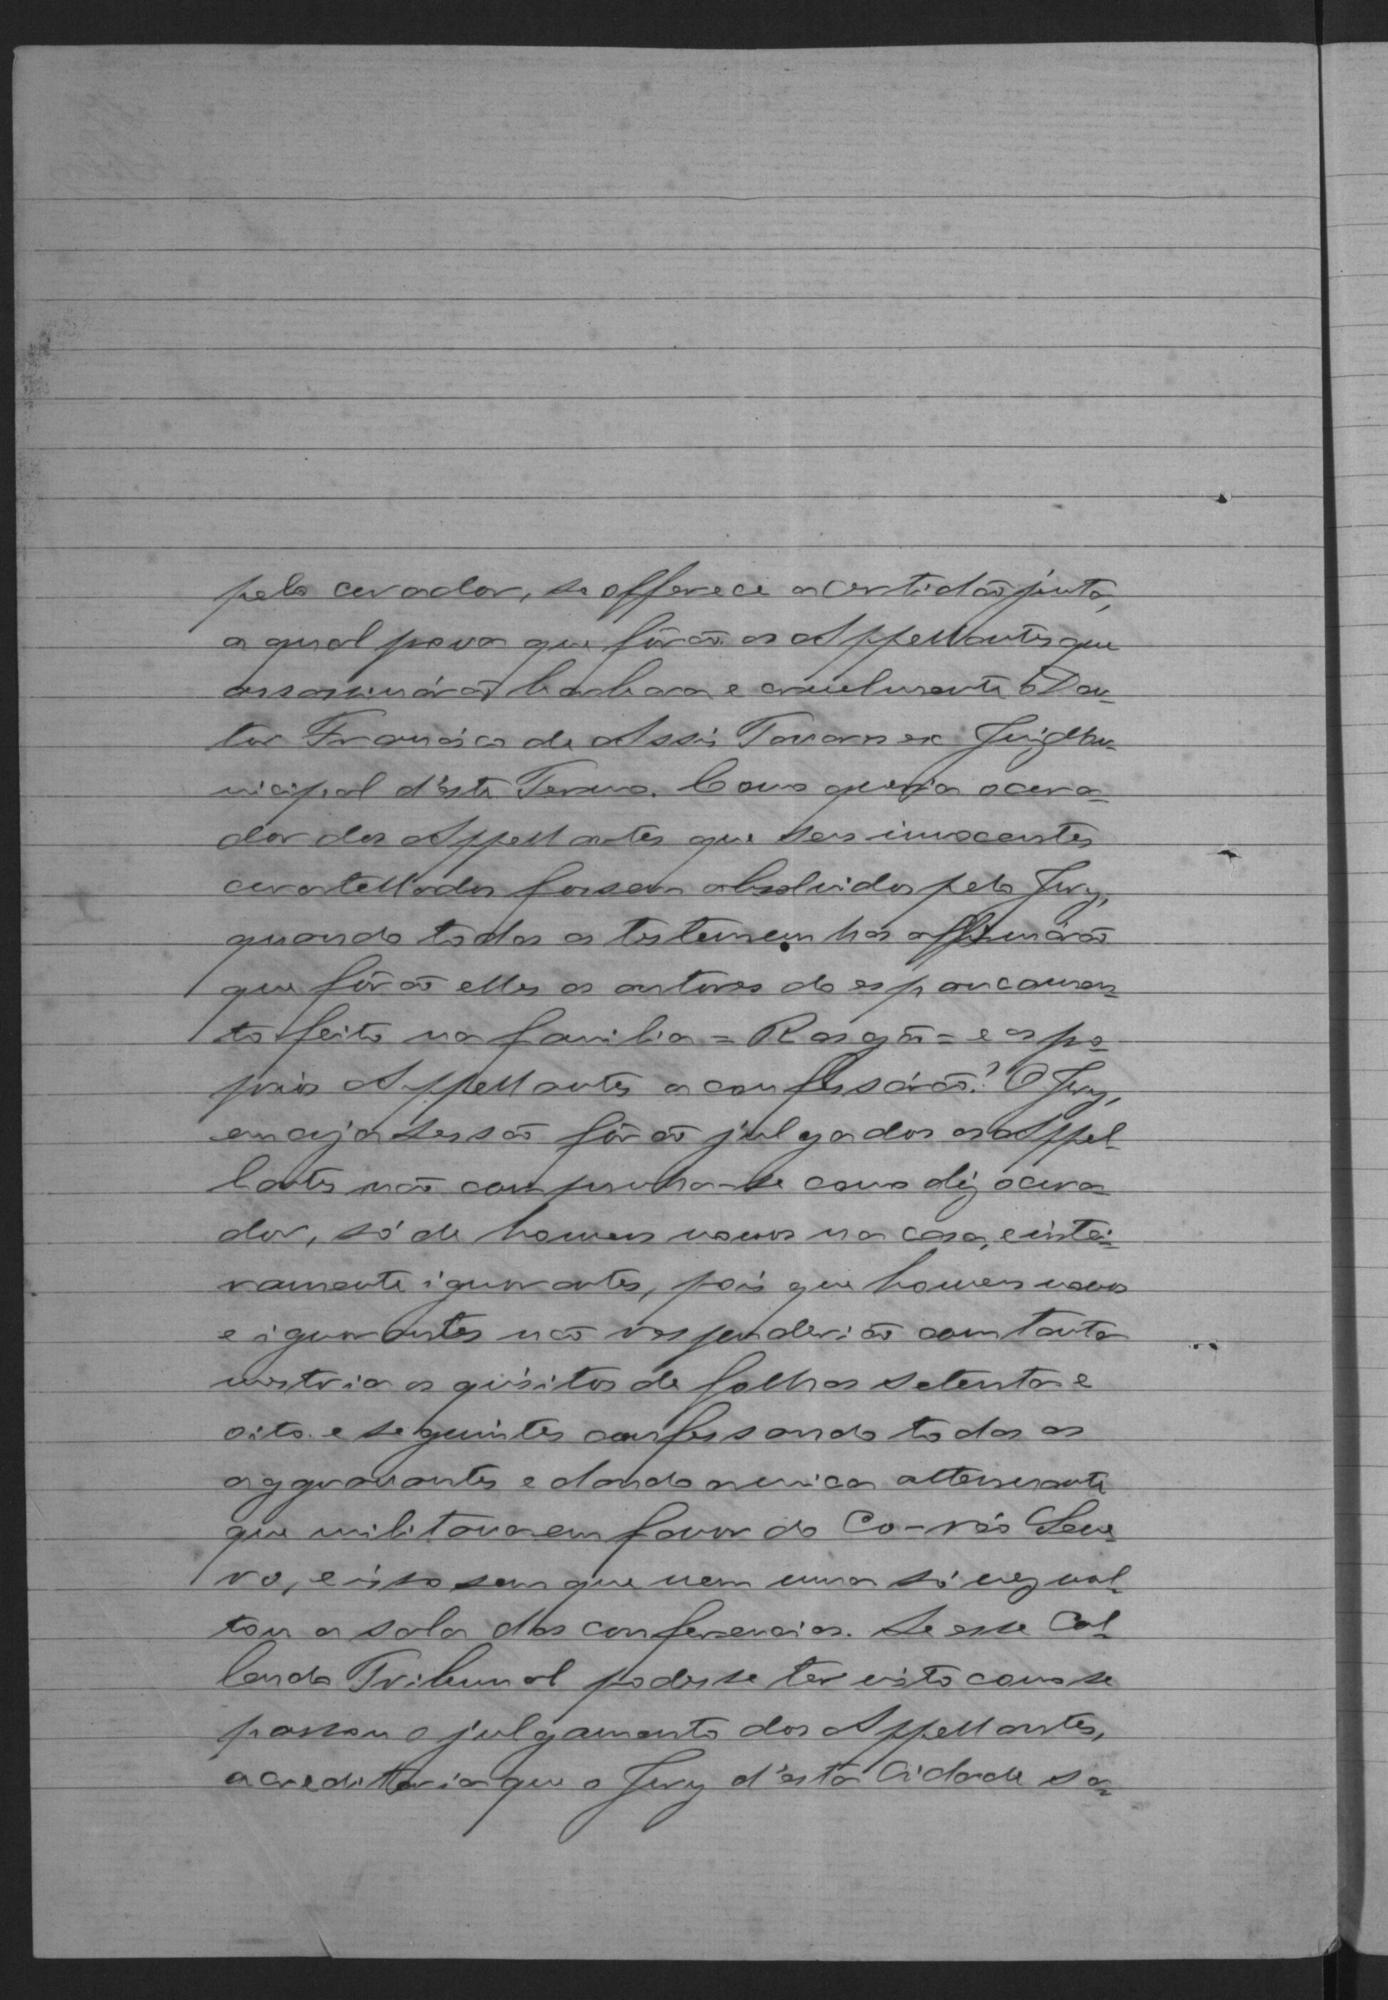 pelo curador, se offerece a certidão junta,
a qual prova que fôrão os Appellantes que
assassinárão barbara e cruelmente o Dou-
tor Francisco de Assis Tavares ex Juiz Mu-
nicipal d'este Termo. Como queria o cura-
dor dos Appellantes que seus innocentes
curatellados fossem absolvidos pelo Jury,
quando todas as testemunhas affirmárão
que fôrão elles os autores do espancamen-
to feito na familia = Rasgão = e os pro-
prios Appellantes a confessárão? O Jury,
em cuja sessão fôrão julgados os Appel-
lantes não compunha-se como diz o cura-
dor, só de homens novos na casa, e intei-
ramente ignorantes, pois que homens novos
e ignorantes não responderião com tanta
mestria os quisitos de folhas setenta e
oito e seguintes confessando todas as
aggravantes e dando a unica attenuante
que militava em favor do Co-réo
vo, e isso sem que nem uma só vez vol-
tou a sala das conferencias. Se esse Col-
lendo Tribunal podesse ter visto como se
passou o julgamento dos Appellantes,
acreditaria que o Jury d'esta Cidade sa-